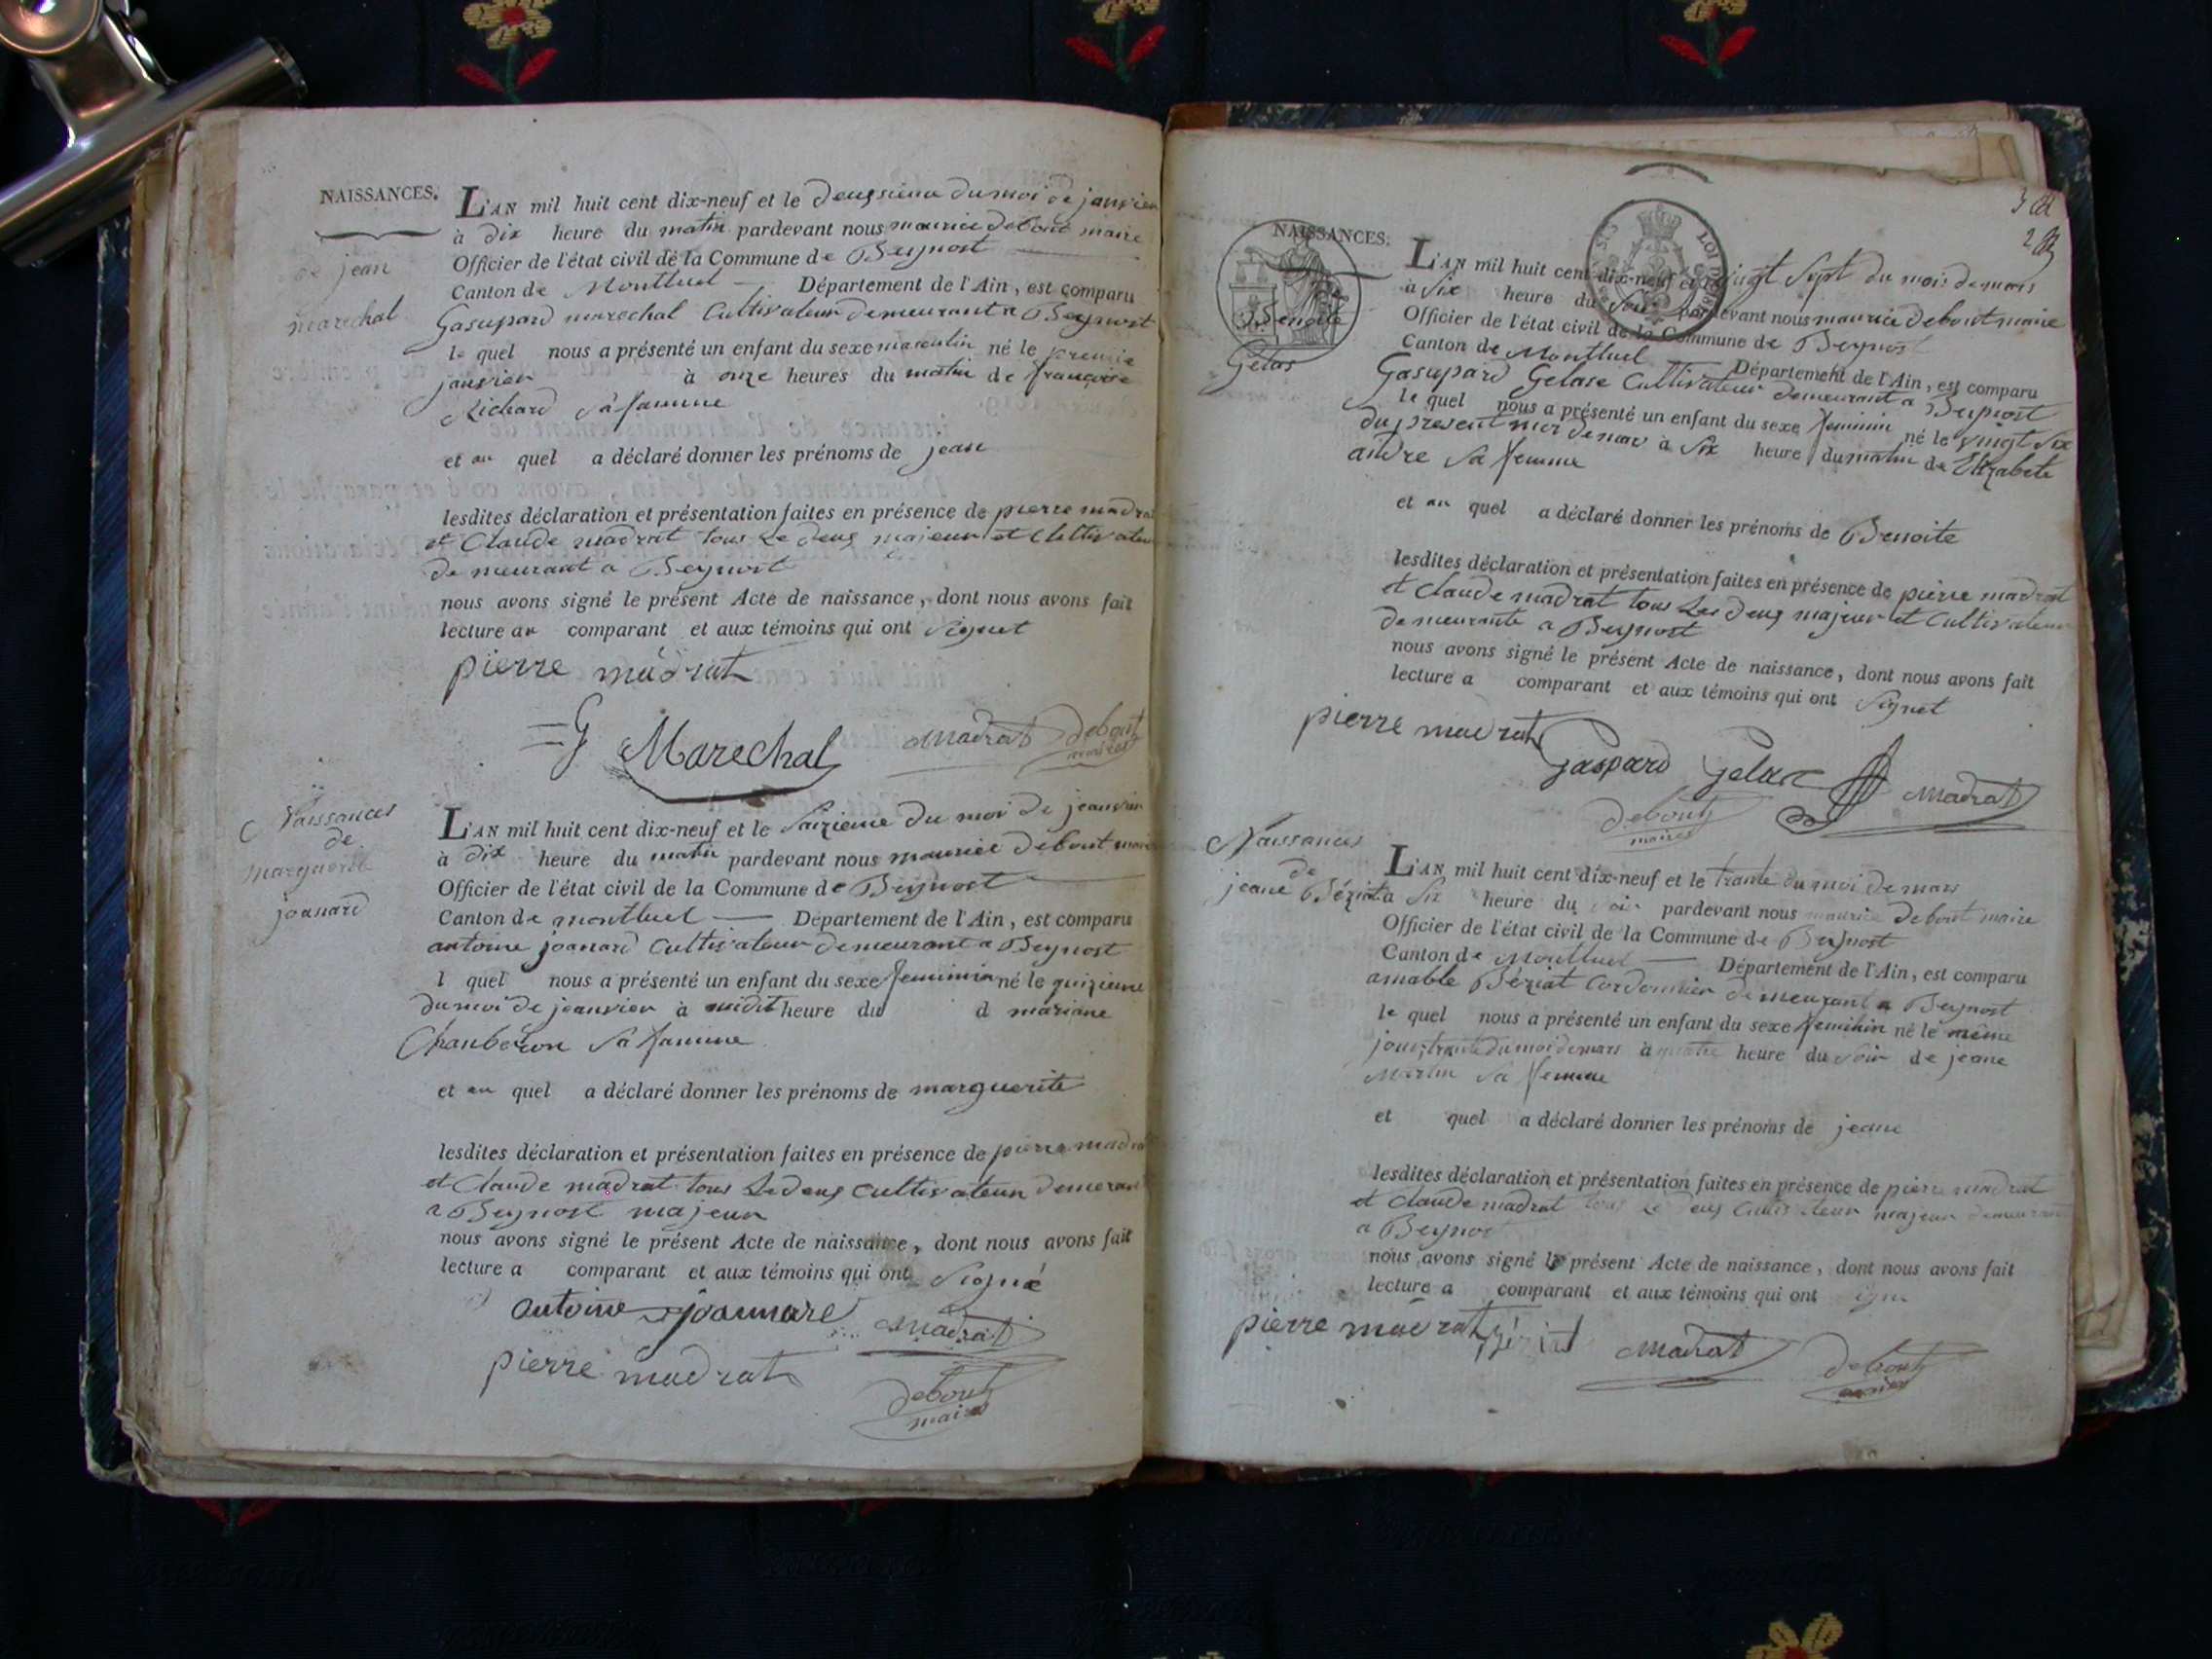 NAISSANCES.
de jean
marechal
L'AN mil huit cent dix-neuf et le deussieme du moi de janvier
à dix heure du matin pardevant nous maurice debout maire
Officier de l'état civil de la Commune de Beynost
Canton de Montluel Département de l'Ain, est comparu
Gasupard marechal Cultivateur demeurant a Beynost
le quel nous a présenté un enfant du sexe masculin né le premie
janvier à onze heures du matin de françoise
Richard sa famme
et au quel a déclaré donner les prénoms de jean
lesdites déclaration et présentation faites en présence de pierre madrat
et Claude madrat tous Le deus majeur et Cultivateu
de meurant a Beynost
nous avons signé le présent Acte de naissance, dont nous avons fait
lecture au comparant et aux témoins qui ont Signet
pierre madrat
G Marechal madrat debout
maire
Naissances
de
marguerite
joanard
L'AN mil huit cent dix-neuf et le Saizieme du moi de jeanvier
à dix heure du matin pardevant nous maurice debout maire
Officier de l'état civil de la Commune de Beynost
Canton de montluel Département de l'Ain, est comparu
antoine joanard Cultivateur demeurant a Beynost
l quel nous a présenté un enfant du sexe feminin né le quizieme
du moi de jeanvier à midit heure du d mariane
Chanberon sa famme
et au quel a déclaré donner les prénoms de marguerite
lesdites déclaration et présentation faites en présence de pierre madrat
et Claude madrat tous Le deus Cultivateur demeran
a Beynost majeur
nous avons signé le présent Acte de naissance, dont nous avons fait
lecture a comparant et aux témoins qui ont Signé
antoine joannard madrat
pierre madrat
debout
maire
3
2
NAISSANCES.
de
Benoite
Gelas
LOI
L'AN mil huit cent dix-neuf et le vingt Sept du mois de mars
à Six heure du Soir pardevant nous maurice debout maire
Officier de l'état civil de la Commune de Beynost
Canton de Montluel Département de l'Ain, est comparu
Gasupard Gelase Cultivateur demeurant a Beynost
le quel nous a présenté un enfant du sexe feminin né le vingt Six
du present moi de mars à Six heure du matin de Elizabete
andre sa femme
et au quel a déclaré donner les prénoms de Benoite
lesdites déclaration et présentation faites en présence de pierre madrat
et Claude madrat tous Les deus majeur et Cultivateur
de meurante a Beynost
nous avons signé le présent Acte de naissance, dont nous avons fait
lecture a comparant et aux témoins qui ont Signet
pierre madrat
Gaspard Gelace madrat
debout
maire
Naissances
de
jeane Bériat
L'AN mil huit cent dix-neuf et le trante du moi de mars
a Six heure du soir pardevant nous maurice debout maire
Officier de l'état civil de la Commune de Beynost
Canton de Montluel Département de l'Ain, est comparu
amable Bériat Cordonnier demeurant a Beynost
le quel nous a présenté un enfant du sexe feminin né le même
jour, trante du moi de mars à quatre heure du Soir de jeane
Martin sa femme
et quel a déclaré donner les prénoms de jeane
lesdites déclaration et présentation faites en présence de pierre madrat
et Claude madrat tous Le deus Cultivateur majeur demeurant
a Beynost
nous avons signé le présent Acte de naissance, dont nous avons fait
lecture a comparant et aux témoins qui ont signé
pierre madrat Bériat madrat debout
maire